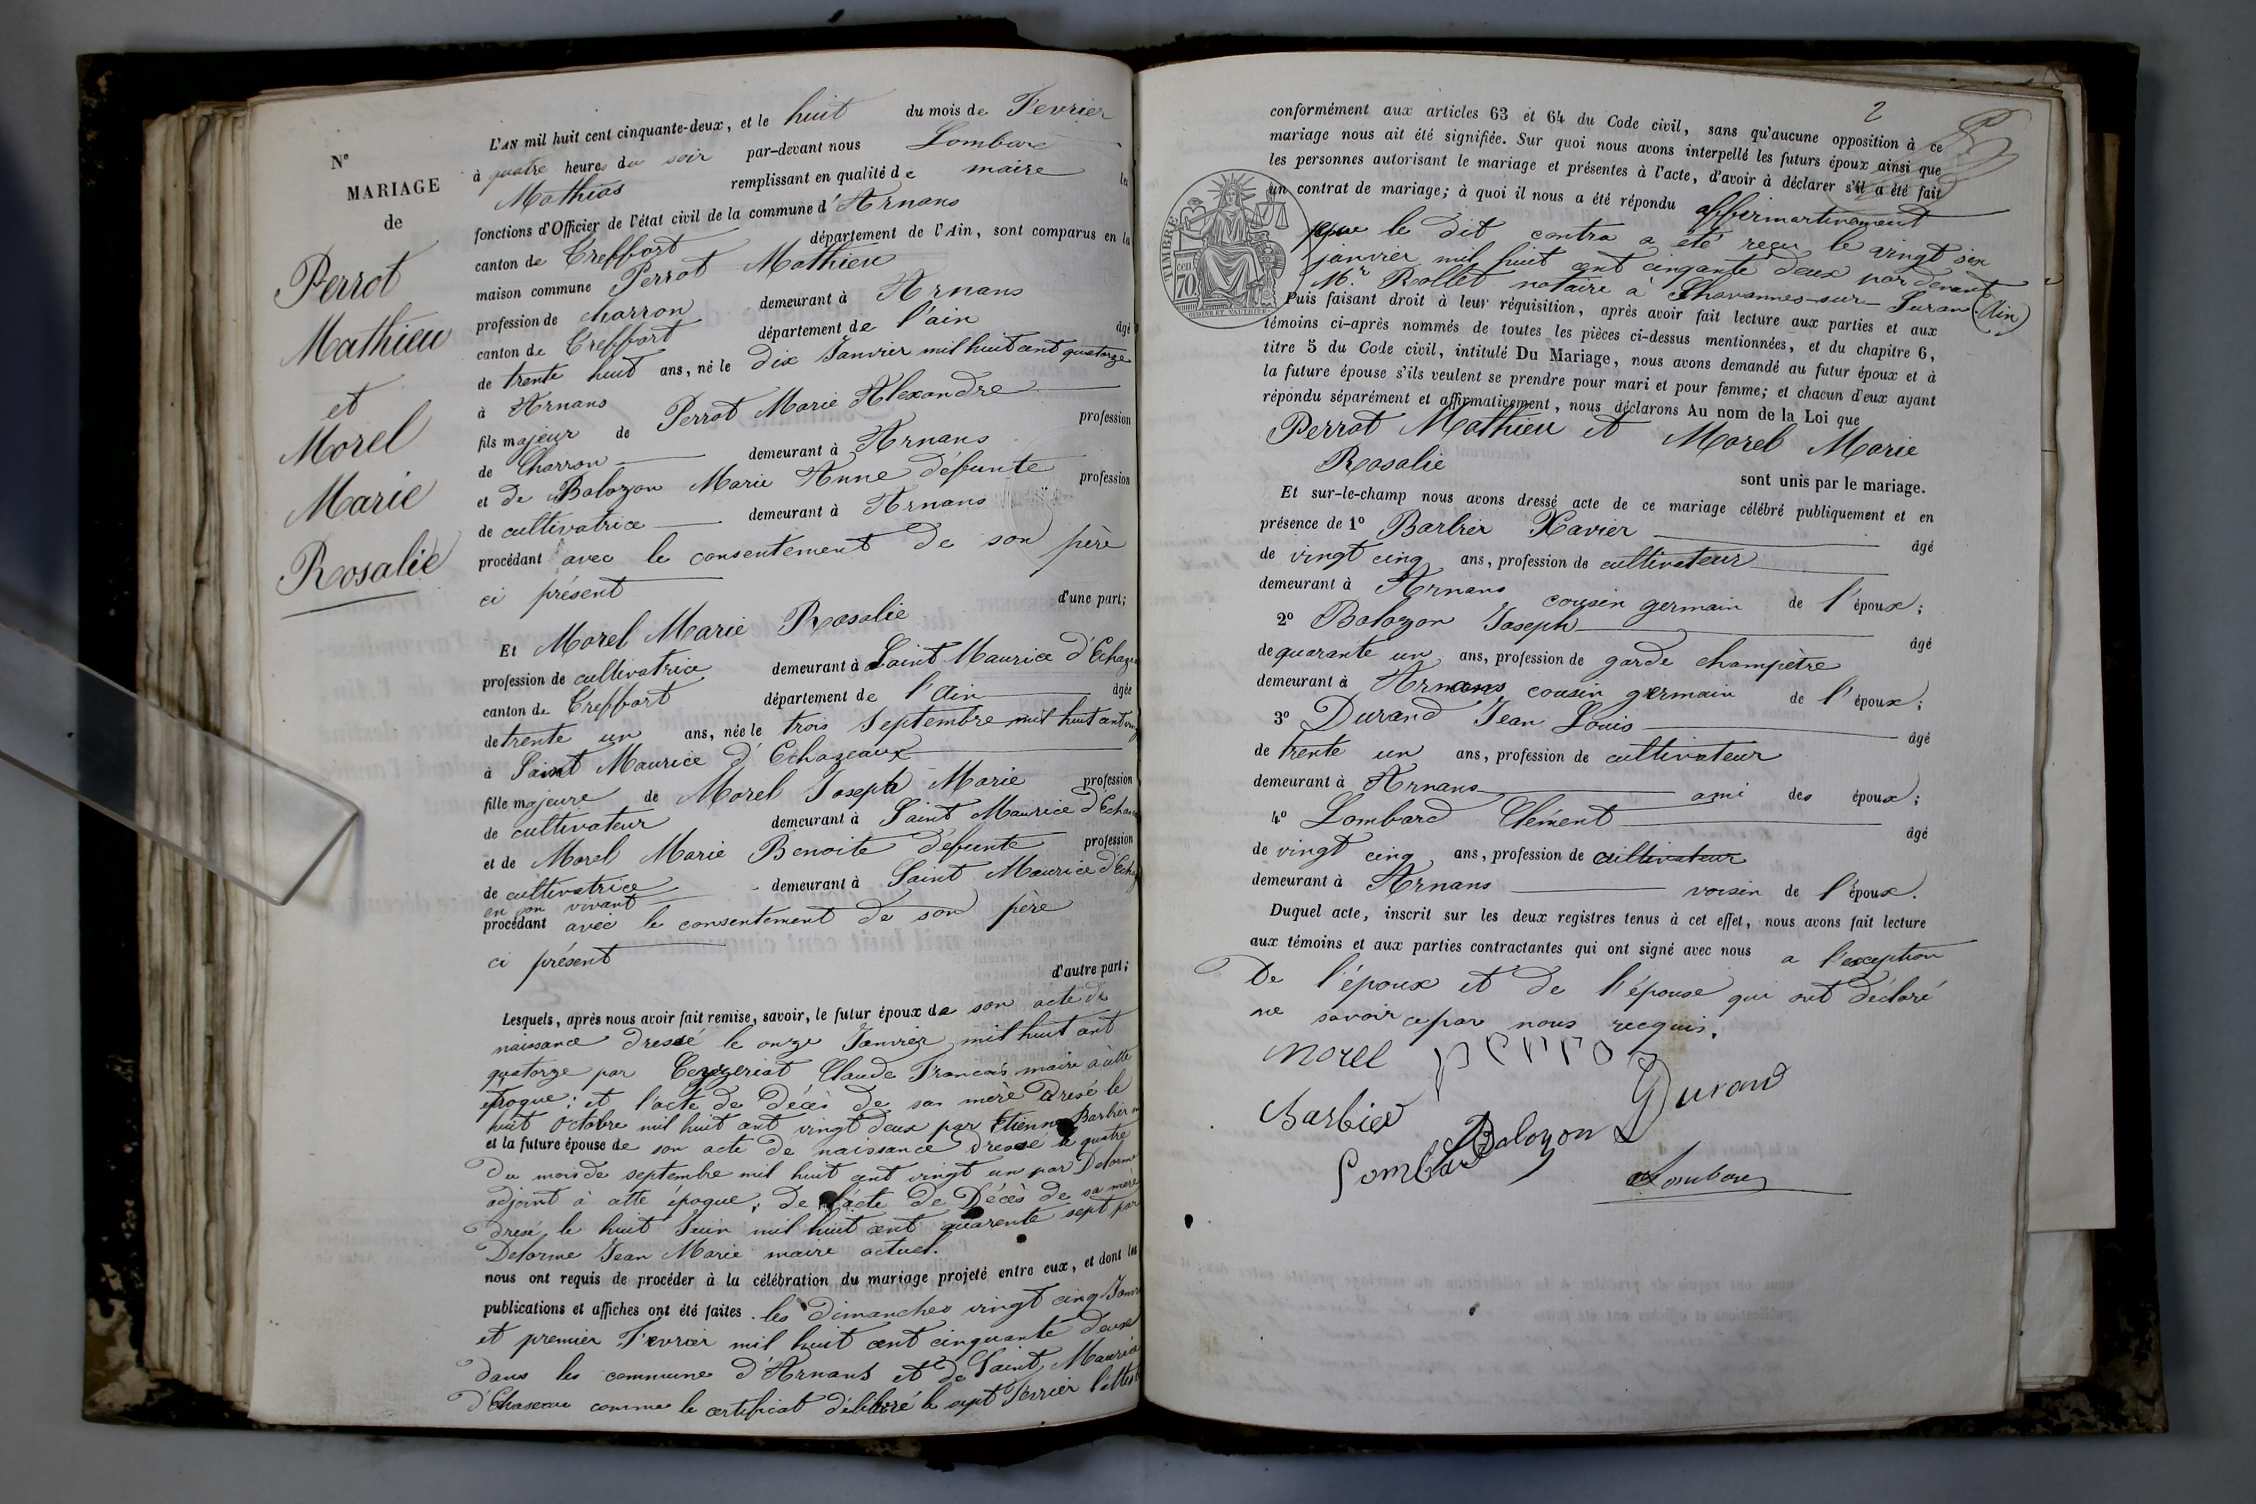 N°
MARIAGE
de
Perrot
Mathieu
et
Morel
Marie
Rosalie
L'AN mil huit cent cinquante-deux, et le huit du mois de Fevrier
à quatre heures du soir par-devant nous Lombard
Mathias remplissant en qualité de maire les
fonctions d'Officier de l'état civil de la commune d'Arnans
canton de Treffort département de l'Ain, sont comparus en la
maison commune Perrot Mathieu
profession de charron demeurant à Arnans
canton de Treffort département de l'ain âgé
de trente huit ans, né le dix Janvier mil huit cent quatorze
à Arnans
fils majeur de Perrot Marie Alexandre profession
de Charron demeurant à Arnans
et de Balozon Marie Anne défunte profession
de cultivatrice demeurant à Arnans
procédant avec le consentement de son père
ci présent d'une part;
Et Morel Marie Rosalie
profession de cultivatrice demeurant à Saint Maurice d'Echaze
canton de Treffort département de l'Ain âgée
de trente un ans, née le trois Septembre mil huit cent
à Saint Maurice d'Echazeaux
fille majeure de Morel Joseph Marie profession
de cultivateur demeurant à Saint Maurice d'Echa
et de Morel Marie Benoite défunte profession
de cultivatrice demeurant à Saint Maurice d'Echa
en son vivant
procédant avec le consentement de son père
ci présent
d'autre part;
Lesquels, après nous avoir fait remise, savoir, le futur époux de son acte de
naissance dressé le onze Janvier mil huit cent
quatorze par Claude Francois maire à cette
époque; et l'acte de décès de sa mère dresé le
huit Octobre mil huit cent vingt deux par Etienne Barbier
et la future épouse de son acte de naissance dressé le quatre
du mois de septembre mil huit cent vingt un par Delorme
adjoint à cette époque; de l'acte de Décès de sa mère
dresé le huit Juin mil huit cent quarente sept par
Delorme Jean Marie maire actuel.
nous ont requis de procéder à la célébration du mariage projeté entre eux, et dont les
publications et affiches ont été faites les dimanches vingt cinq Janvi
et premier Fevrier mil huit cent cinquante deux
dans les commune d'Arnans et de Saint Maurice
d'Echaseau comme le certificat délibéré le sept Fevrier l'atteste
2
conformément aux articles 63 et 64 du Code civil, sans qu'aucune opposition à ce
mariage nous ait été signifiée. Sur quoi nous avons interpellé les futurs époux ainsi que
les personnes autorisant le mariage et présentes à l'acte, d'avoir à déclarer s'il a été fait
un contrat de mariage; à quoi il nous a été répondu affirmartivement
que le dit contra a été reçu le vingt six
janvier mil huit cent cinqante deux par devant
Mr. Rollet notaire à Chavannes-sur-Suran (Ain)
TIMBRE
70
Puis faisant droit à leur réquisition, après avoir fait lecture aux parties et aux
témoins ci-après nommés de toutes les pièces ci-dessus mentionnées, et du chapitre 6,
titre 5 du Code civil, intitulé Du Mariage, nous avons demandé au futur époux et à
la future épouse s'ils veulent se prendre pour mari et pour femme; et chacun d'eux ayant
répondu séparément et affirmativement, nous déclarons Au nom de la Loi que
Perrot Mathieu et Morel Marie
Rosalie
sont unis par le mariage.
Et sur-le-champ nous avons dressé acte de ce mariage célébré publiquement et en
présence de 1° Barbier Xavier âgé
de vingt cinq ans, profession de cultivateur
demeurant à Arnans cousin germain de l'époux;
2° Balozon Joseph âgé
de quarante un ans, profession de garde champètre
demeurant à Arnans cousin germain de l'époux;
3° Durand Jean Louis âgé
de trente un ans, profession de cultivateur
demeurant à Arnans ami des époux;
4° Lombard Clément âgé
de vingt cinq ans, profession de cultivateur
demeurant à Arnans voisin de l'époux.
Duquel acte, inscrit sur les deux registres tenus à cet effet, nous avons fait lecture
aux témoins et aux parties contractantes qui ont signé avec nous a l'exception
De l'époux et de l'épouse qui ont déclaré
ne savoir ce par nous recquis.
Morel perrot
Barbier Durand
Balozon
Lombard
Lombard